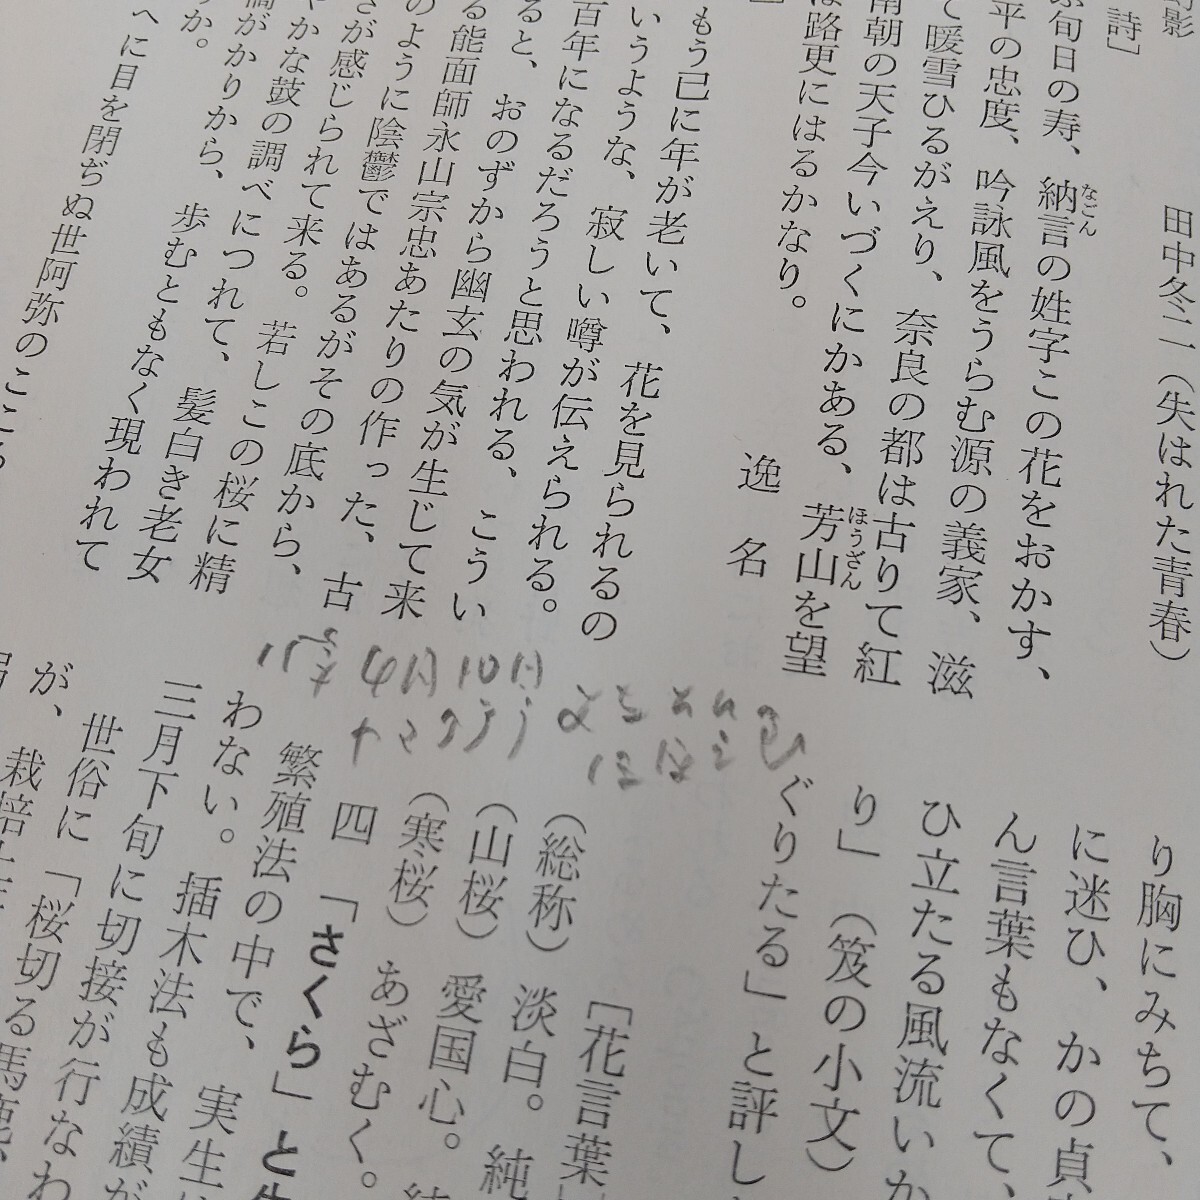 幻影
詩］
田中冬二（失はれた青春）
旬日の寿、納言の姓字この花をおかす、
なごん
平の忠度、吟詠風をうらむ源の義家、滋
て暖雪ひるがえり、奈良の都は古りて紅
南朝の天子今いづくにかある、芳山を望
ほうざん
は路更にはるかなり。
逸名
もう已に年が老いて、花を見られるの
いうような、寂しい噂が伝えられる。
百年になるだろうと思われる、こうい
ると、おのずから幽玄の気が生じて来
る能面師永山宗忠あたりの作った、古
のように陰鬱ではあるがその底から、
さが感じられて来る。若しこの桜に精
やかな鼓の調べにつれて、髪白き老女
橋がかりから、歩むともなく現われて
か。
へに目を閉ぢぬ世阿弥のこころ
4月10日
り胸にみちて、
に迷ひ、かの貞
ん言葉もなくて、
ひ立たる風流いか
り」（笈の小文）
ぐりたる」と評し
［花言葉］
（総称）淡白。純
（山桜）愛国心。
（寒桜）あざむく。
四「さくら」と
繁殖法の中で、実生
わない。挿木法も成績が
三月下旬に切接が行なわ
世俗に「桜切る馬鹿、
が、栽培上